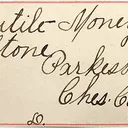 utile Money
Stone
Parkes
Ches. C
D.